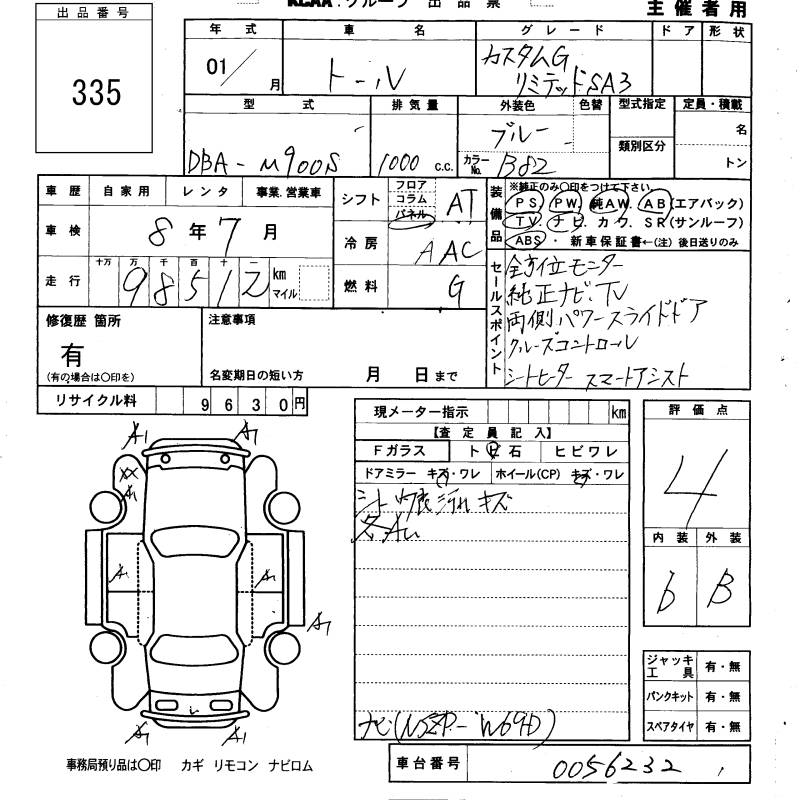 KCAA．グループ 出品票
主催者用
出品番号
335
年式 車名 グレード ドア 形状
01/ 月 トール カスタムG
リミテッドSA3
型式 排気量 外装色 色替 型式指定 定員・積載
DBA-M900S 1000 c.c. ブルー 類別区分 名
カラーNo. B82 トン
車歴 自家用 レンタ 事業.営業車
車検 8年 7月
走行 十万 万 千 百 十 一
98512 km マイル
シフト フロア コラム パネル AT
冷房 AAC
燃料 G
装備品 ※純正のみ〇印をつけて下さい。
PS PW 純AW AB(エアバック)
TV ナビ カワ SR(サンルーフ)
ABS・新車保証書←(注)後日送りのみ
セールスポイント
全方位モニター
純正ナビ.TV
両側パワースライドドア
クルーズコントロール
シートヒーター スマートアシスト
修復歴 箇所
有
(有の場合は〇印を)
注意事項
名変期日の短い方 月 日まで
リサイクル料 9630円
現メーター指示 km
【査定員記入】
Fガラス トビ石 ヒビワレ
ドアミラー キズ・ワレ ホイール(CP) キズ・ワレ
シート 内張 汚れ キズ
各A1
ナビ(NSZP-W69D)
評価点
4
内装 外装
b B
ジャッキ 工具 有・無
パンクキット 有・無
スペアタイヤ 有・無
A1 A1
XX
A1
A1 A1
A1
A1 A1
事務局預り品は〇印 カギ リモコン ナビロム
車台番号 0056232